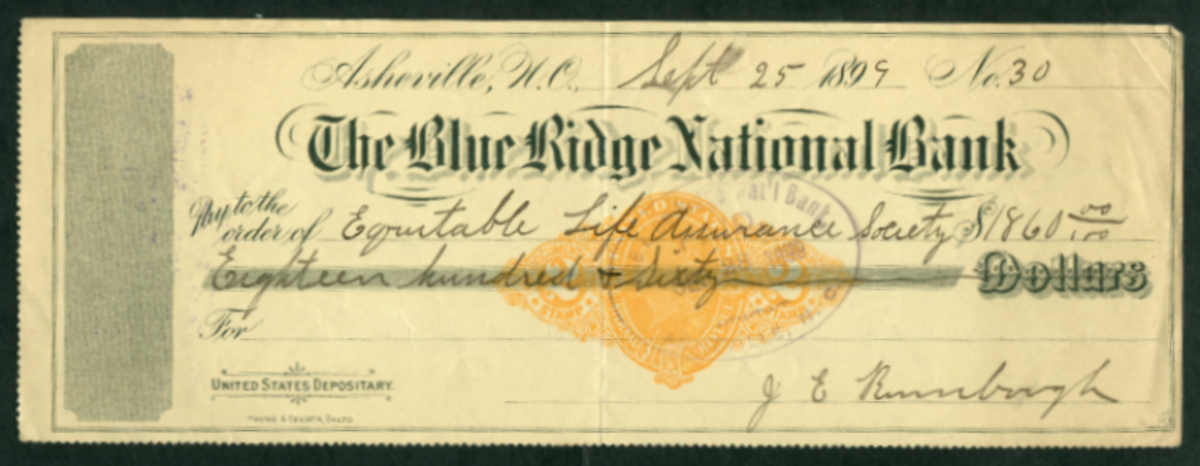 Asheville, N.C., Sept 25 1899 No. 30
The Blue Ridge National Bank
Pay to the order of Equitable Life Assurance Society $1860 00/100
Eighteen hundred + sixty Dollars
For
UNITED STATES DEPOSITARY.
J E Rumbough
Nat'l Bank
STAMP STAMP